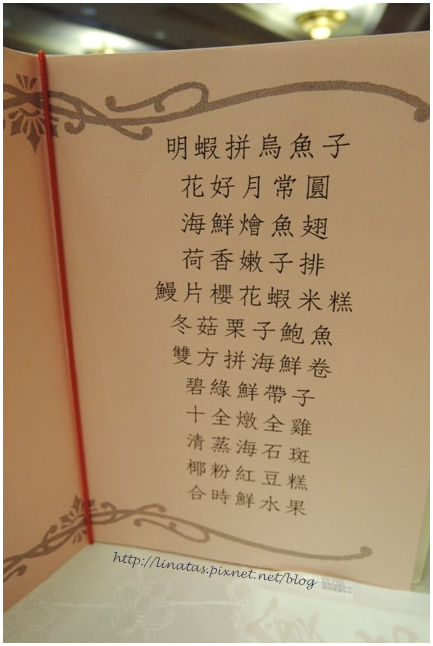 明蝦拼烏魚子
花好月常圓
海鮮燴魚翅
荷香嫩子排
鰻片櫻花蝦米糕
冬菇栗子鮑魚
雙方拼海鮮卷
碧綠鮮帶子
十全燉全雞
清蒸海石斑
椰粉紅豆糕
合時鮮水果
http://linatas.pixnet.net/blog